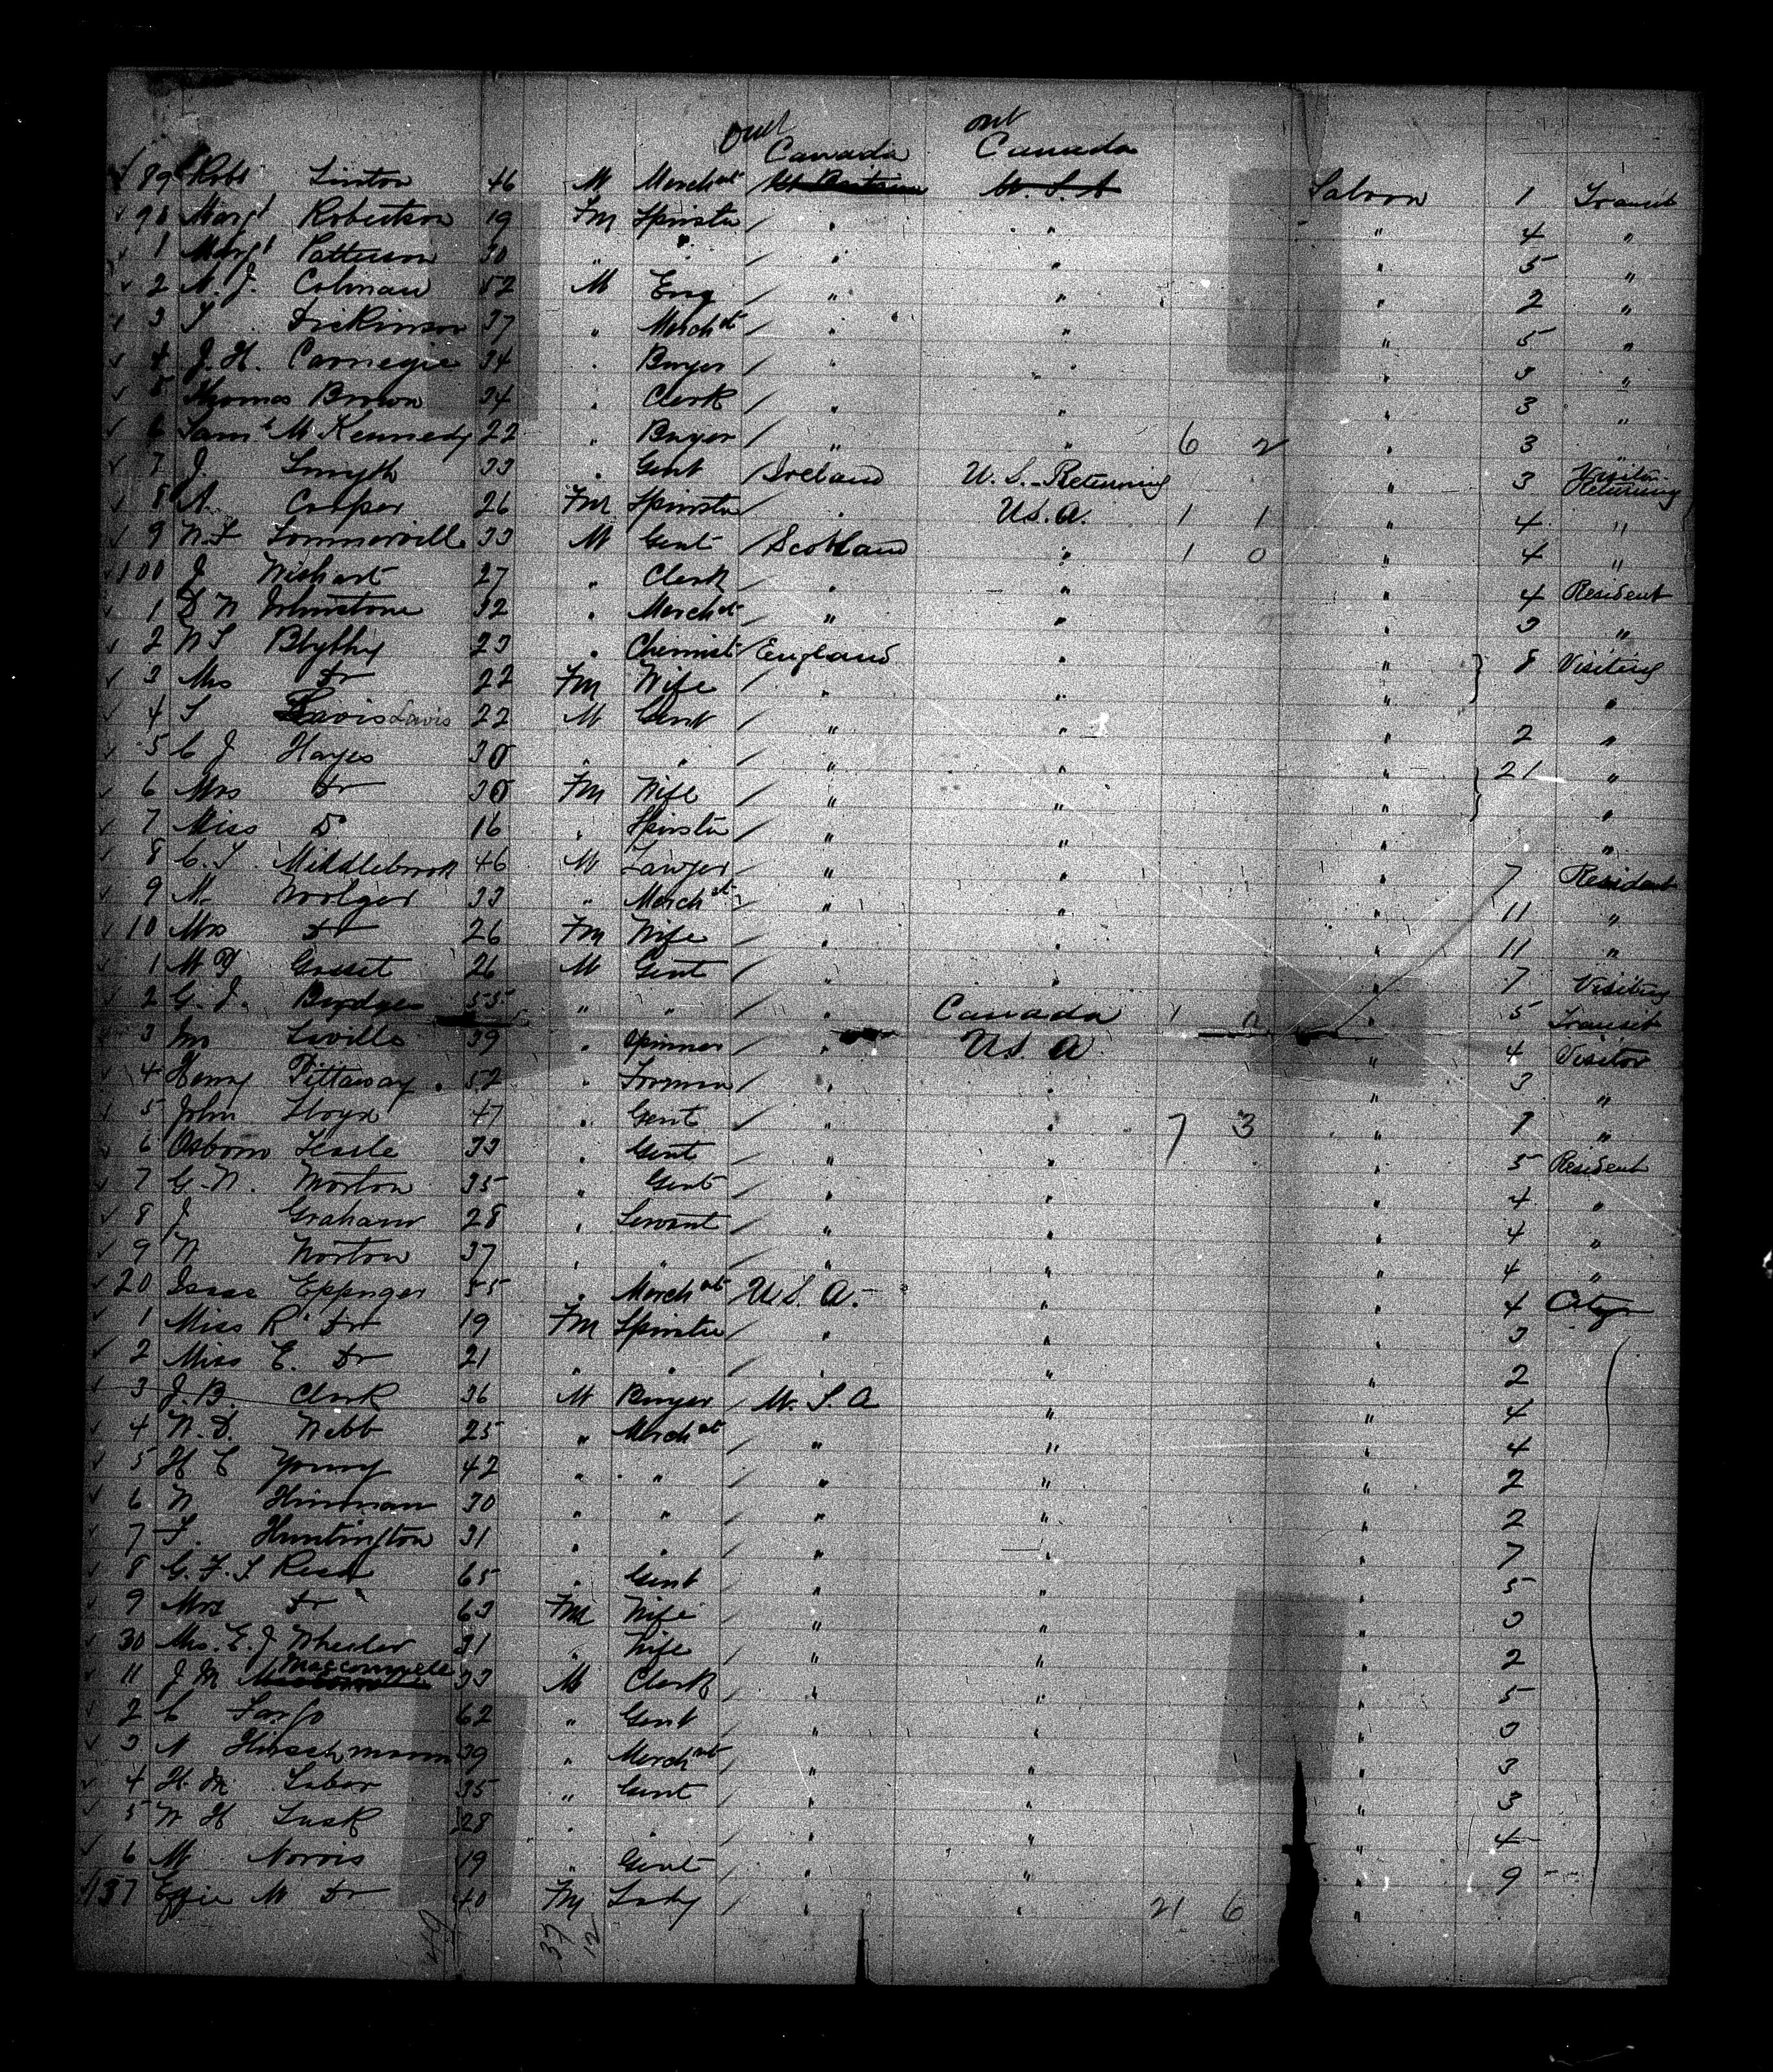 out out
Canada Canada
89 Robt Linton 46 M Mercht U. S. A Saloon 1 Transit
90 Margt Robertson 19 Fm Spinster " " " 4 "
1 Margt Patterson 30 " " " " " 5 "
2 A. J. Colman 52 M Eng " " " 2 "
3 T Dickinson 37 " Mercht " " " 5 "
4 J. H. Carnegie 34 " Buyer " " " 3 "
5 Thomas Brown 34 " Clerk " " " 3 "
6 Saml M Kennedy 22 " Buyer " " 6 2 " 3 "
7 J. Smyth 33 " Gent Ireland U. S. Returning " 3 Visitor Returning
8 A. Cooper 26 Fm Spinster " U.S.A. 1 1 " 4 "
9 W. F Sommerville 33 M Gent Scotland " 1 0 " 4 "
100 J Wishart 27 " Clerk " " " 4 Resident
1 D W Johnstone 32 " Mercht " " " 3 "
2 W S Blythy 23 " Chemist England " " 8 Visiting
3 Mrs Do 22 Fm Wife " " " "
4 S Lavis 22 M Gent " " " 2 "
5 C J Hayes 30 " " " " " 21 "
6 Mrs Do 30 Fm Wife " " " "
7 Miss Do 16 " Spinster " " "
8 C. S. Middlebrook 46 M Lawyer " " " 7 Resident
9 M. Woolger 33 " Mercht " " " 11 "
10 Mrs Do 26 Fm Wife " " " 11 "
1 M D Gosset 26 M Gent " " " 7 Visiting
2 G. J. Bridges 55 " " " Canada 1 " 5 Transit
3 Mr Saville 39 " Spinner " U.S. A. " 4 Visitor
4 Henry Pittaway 52 " Forman " " " 3 "
5 John Lloyd 47 " Gent " " 7 3 " "
6 Osborn 33 " Gent " " " 5 Resident
7 G. W. Morton 35 " Gent " " " 4 "
8 J Graham 28 " Servant " " " 4 "
9 W Norton 37 " " " " " 4 "
20 Isaac Eppinger 55 " Mercht U. S. A. " " 4 Citizen
1 Miss R Do 19 Fm Spinster " " " 3
2 Miss E. Do 21 " " " " 2
3 J. B. Clark 36 M Buyer U. S. A " " 4
4 W. D. Webb 25 " Mercht " " " 4
5 H C Young 42 " " " " " 2
6 W Hinman 30 " " " " " 2
7 S. Huntington 31 " " " " " 7
8 G. F. S 65 " Gent " " " 5
9 Mrs Do 63 Fm Wife " " " 3
30 Mrs. E. J Wheeler 31 " Wife " " " 2
11 J M 33 M Clerk " " " 5
2 C Fargo 62 " Gent " " " 3
3 A Hirschmann 39 " Mercht " " " 3
4 H. M. Labor 35 " Gent " " " 3
5 W H Lusk 28 " " " " " 4
6 M Norris 19 " Gent " " " 9
137 Effie M Do 40 Fm Lady " " 21 6 "
49 37 12